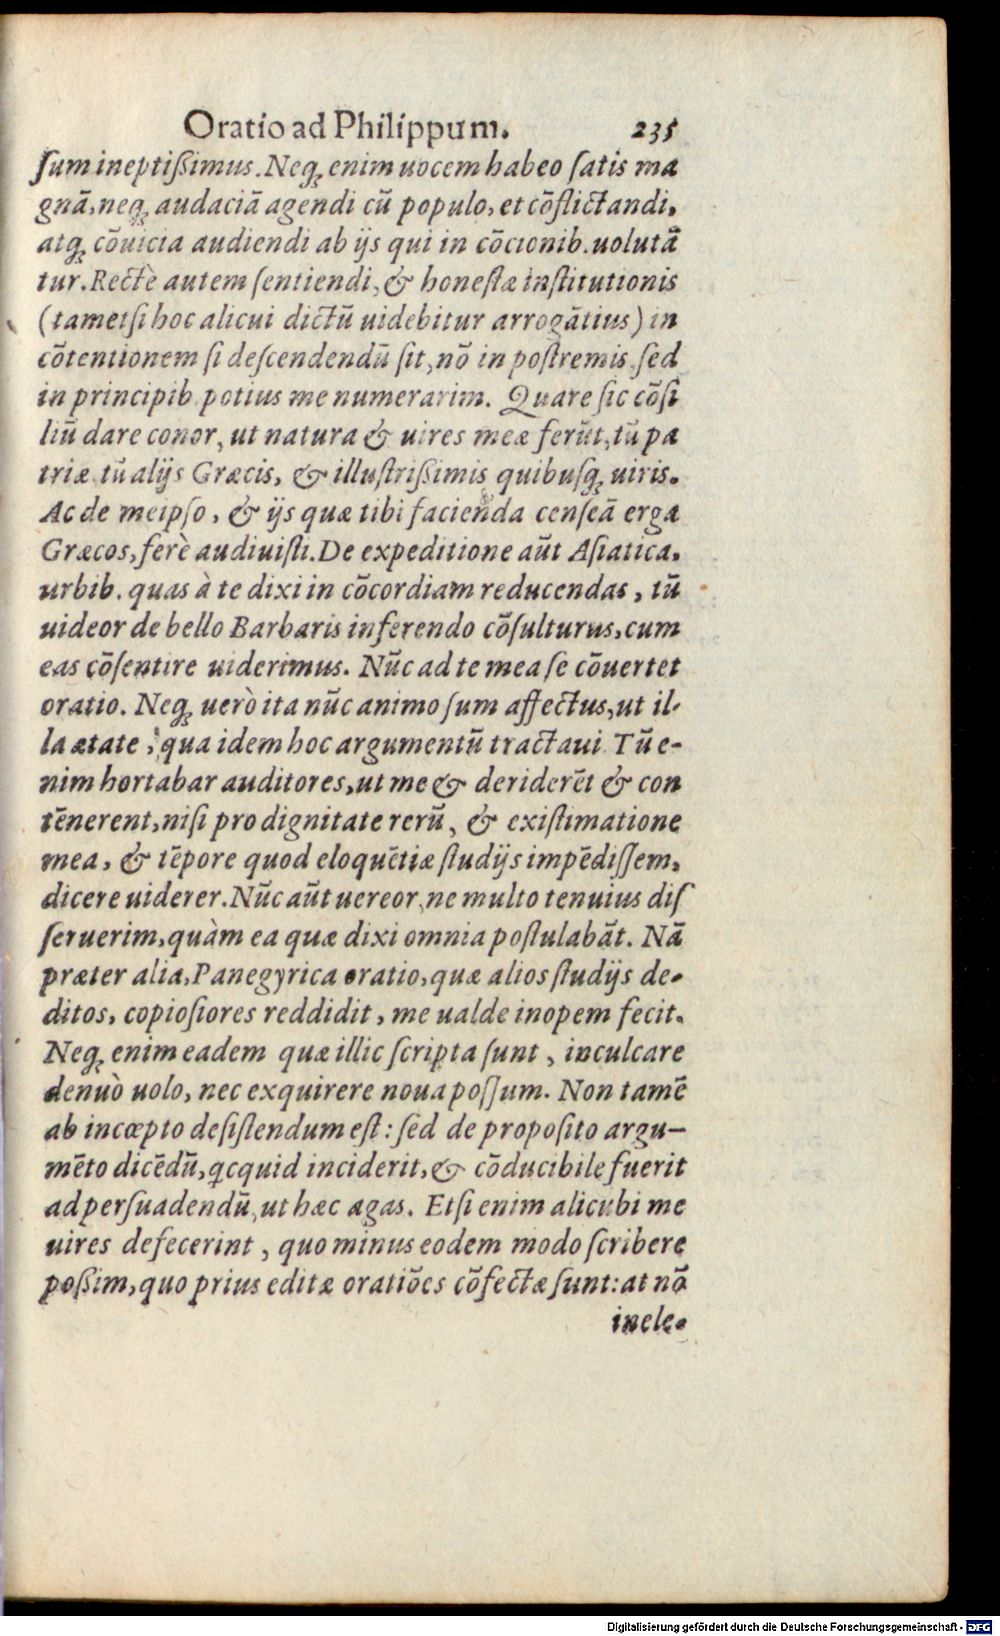 Oratio ad Philippum. 235
ſum ineptiſsimus. Neqꝫ enim uocem habeo ſatis ma
gnã, neqꝫ audaciã agendi cũ populo, et cõflictandi,
atqꝫ cõuicia audiendi ab ijs qui in cõcionib. uolutã
tur. Rectè autem ſentiendi, & honeſtæ inſtitutionis
(tametſi hoc alicui dictũ uidebitur arrogãtius) in
cõtentionem ſi deſcendendũ ſit, nõ in poſtremis, ſed
in principib. potius me numerarim. Quare ſic cõſi
liũ dare conor, ut natura & uires meæ ferũt, tũ pa
triæ, tũ alijs Græcis, & illuſtriſsimis quibuſqꝫ uiris.
Ac de meipſo, & ijs quæ tibi facienda cenſeã erga
Græcos, ferè audiuiſti. De expeditione aũt Aſiatica,
urbib. quas à te dixi in cõcordiam reducendas, tũ
uideor de bello Barbaris inferendo cõſulturus, cum
eas cõſentire uiderimus. Nũc ad te mea ſe cõuertet
oratio. Neqꝫ uerò ita nũc animo ſum affectus, ut il-
la ætate, qua idem hoc argumentũ tractaui. Tũ e-
nim hortabar auditores, ut me & deriderẽt & con
tẽnerent, niſi pro dignitate rerũ, & exiſtimatione
mea, & tẽpore quod eloquẽtiæ ſtudijs impẽdiſſem,
dicere uiderer. Nũc aũt uereor, ne multo tenuius diſ
ſeruerim, quàm ea quæ dixi omnia poſtulabãt. Nã
præter alia, Panegyrica oratio, quæ alios ſtudijs de-
ditos, copioſiores reddidit, me ualde inopem fecit.
Neqꝫ enim eadem quæ illic ſcripta ſunt, inculcare
denuò uolo, nec exquirere noua poſſum. Non tamẽ
ab incœpto deſiſtendum eſt: ſed de propoſito argu-
mẽto dicẽdũ, qcquid inciderit, & cõducibile fuerit
ad perſuadendũ, ut hæc agas. Etſi enim alicubi me
uires defecerint, quo minus eodem modo ſcribere
poſsim, quo prius editæ oratiões cõfectæ ſunt: at nõ
inele-
Digitalisierung gefördert durch die Deutsche Forschungsgemeinschaft - DFG